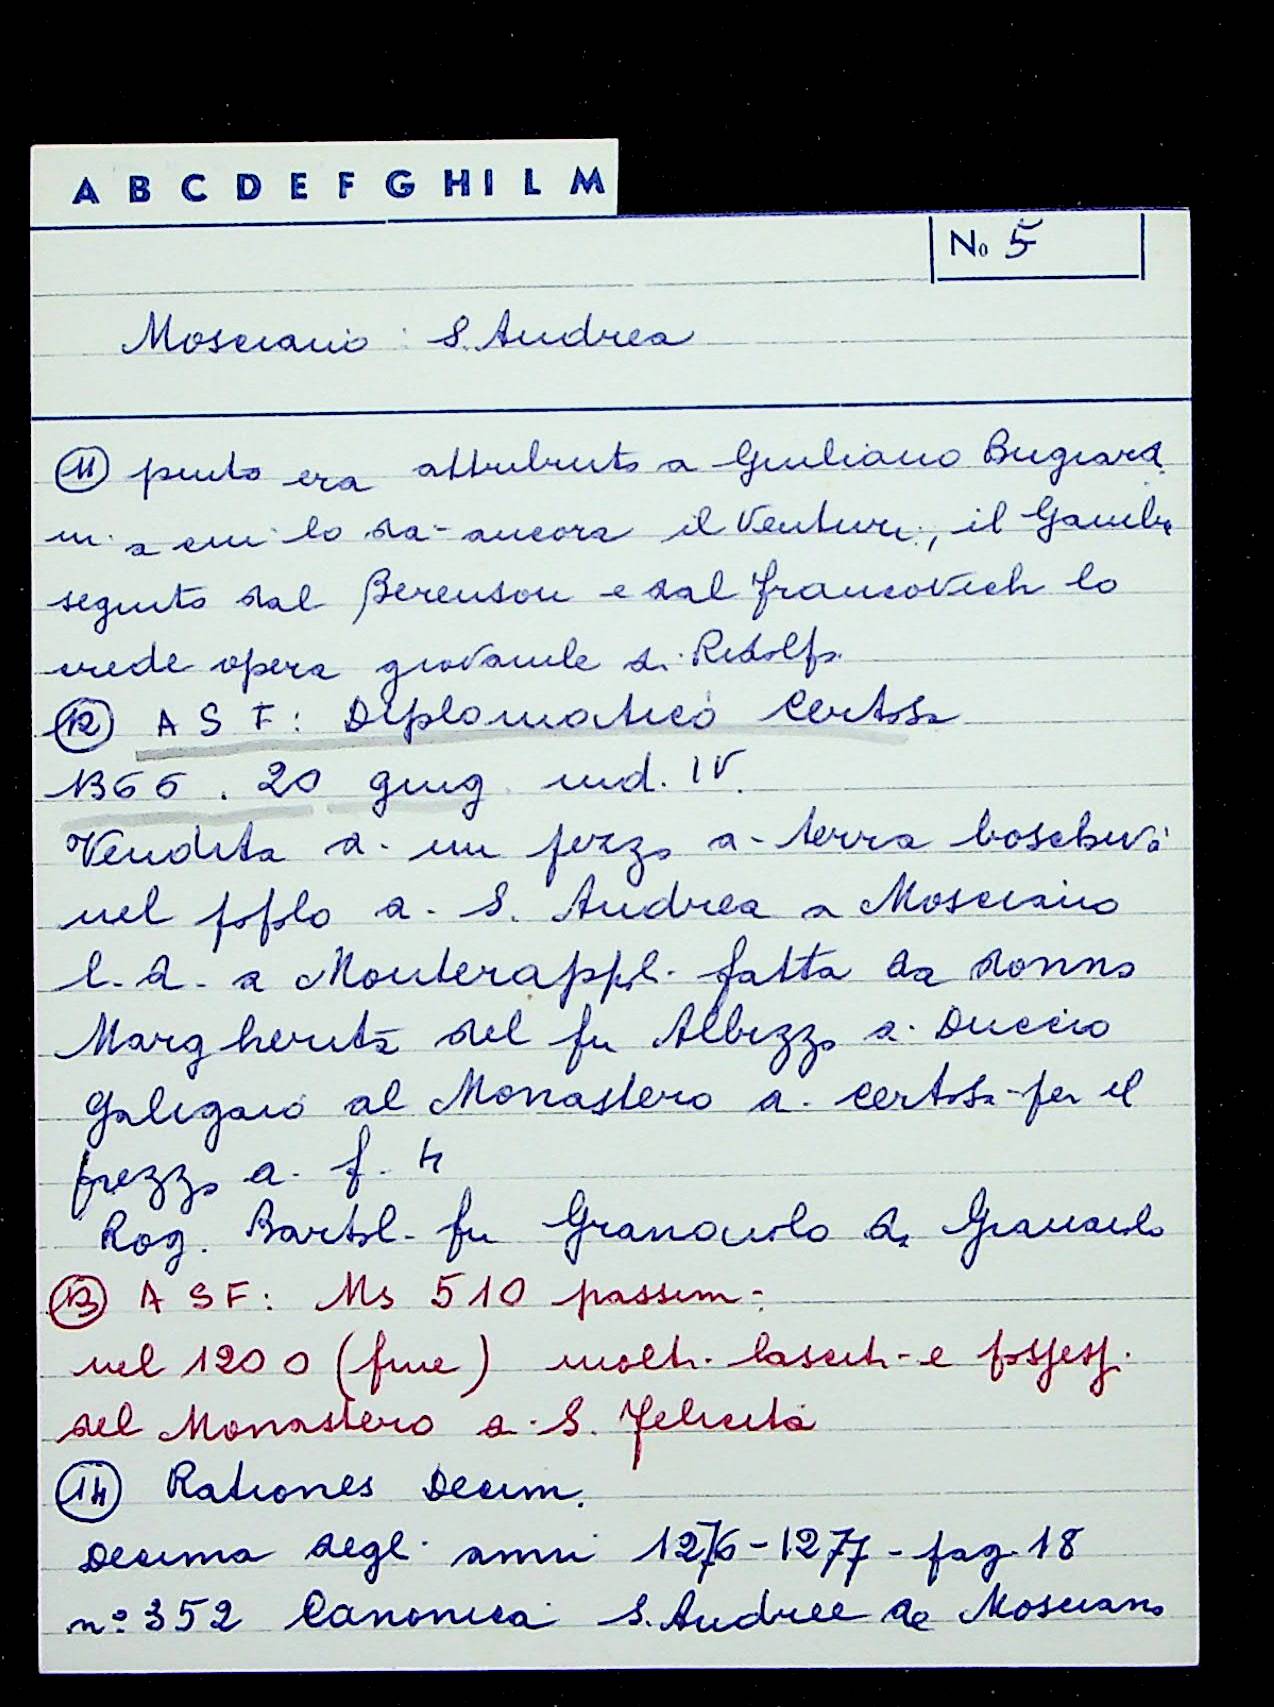 A B C D E F G H I L M
No 5
Mosciano : S. Andrea
(11) pinto era attribuito a Giuliano Bugiardi
ni a cui lo dà ancora il Venturi, il Gamba
seguito dal Berenson e dal Francovich lo
crede opera giovanile di Ridolfo
(12) A S F : Diplomatico Certosa
1366 . 20 giug. ind. IV.
Vendita di un pezzo di terra boschiva
nel popolo di S. Andrea a Mosciano
l. d. a Monterappoli fatta da donna
Margherita del fu Albizzo di Duccio
Galigaio al Monastero di Certosa per il
prezzo di f. 4
Rog. Bartol. fu Granaiolo da Granaiolo
(13) A S F : Ms 510 passim -
nel 1200 (fine) molti lasciti e possess.
del Monastero di S. Felicita
(14) Rationes Decim.
Decima degli anni 1276 - 1277 - pag. 18
n° 352 Canonica S. Andree de Mosciano